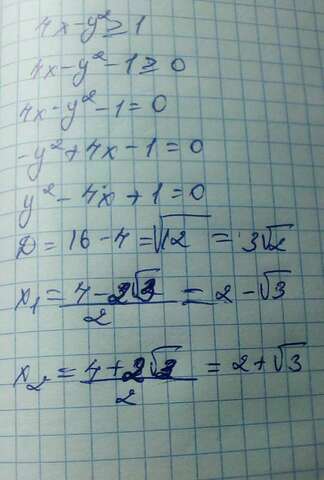 4x-y²≥1
4x-y²-1≥0
4x-y²-1=0
-y²+4x-1=0
y²-4x+1=0
D=16-4=√12=3√2
x₁=(4-2√3)/2=2-√3
x₂=(4+2√3)/2=2+√3